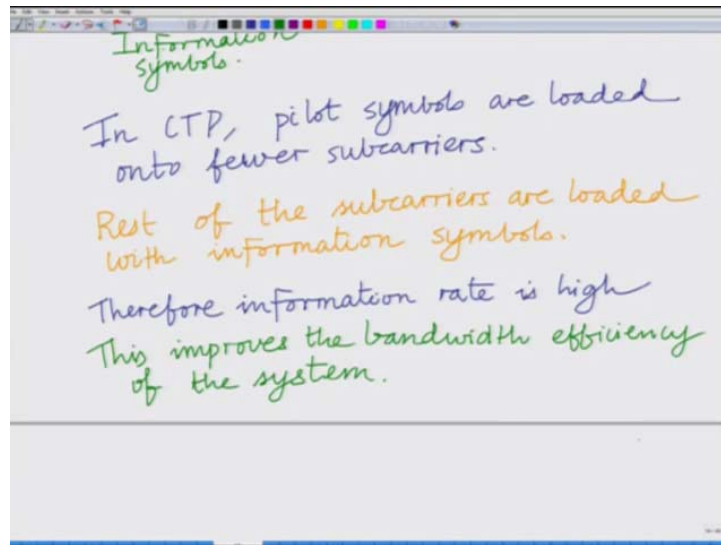 Information
symbols.
In CTP, pilot symbols are loaded
onto fewer subcarriers.
Rest of the subcarriers are loaded
with information symbols.
Therefore information rate is high
This improves the bandwidth efficiency
of the system.